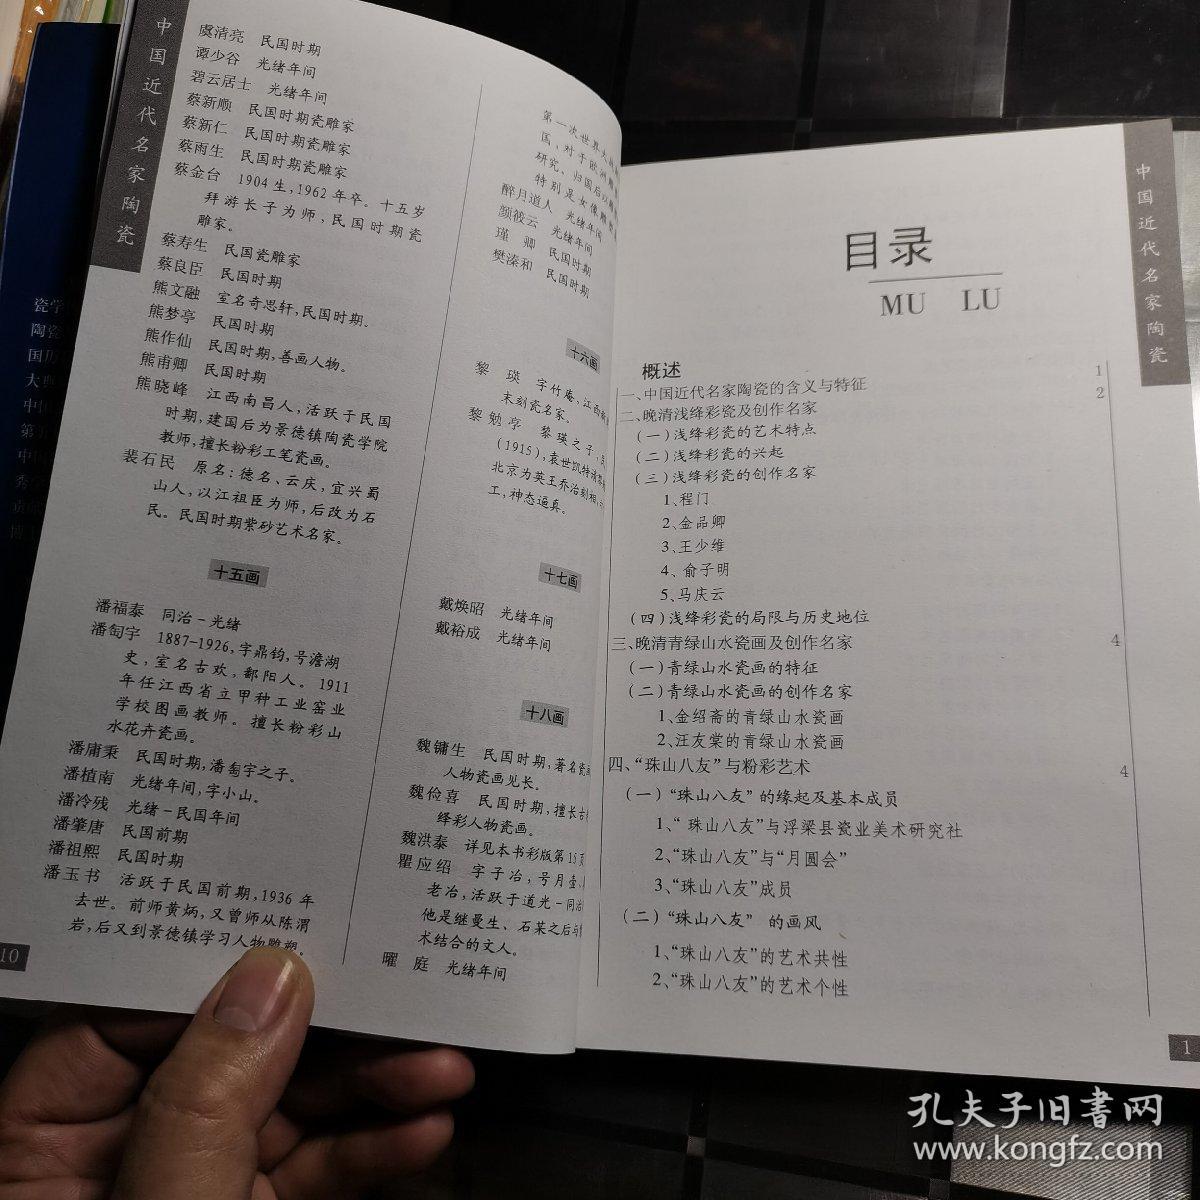 中国近代名家陶瓷
虞清亮 民国时期
谭少谷 光绪年间
碧云居士 光绪年间
蔡新顺 民国时期瓷雕家
蔡新仁 民国时期瓷雕家
蔡雨生 民国时期瓷雕家
蔡金台 1904生,1962年卒。十五岁
拜游长子为师,民国时期瓷
雕家。
蔡寿生 民国瓷雕家
蔡良臣 民国时期
熊文融 室名奇思轩,民国时期。
熊梦亭 民国时期
熊作仙 民国时期,善画人物。
熊甫卿 民国时期
熊晓峰 江西南昌人,活跃于民国
时期,建国后为景德镇陶瓷学院
教师,擅长粉彩工笔瓷画。
裴石民 原名:德名、云庆,宜兴蜀
山人,以江祖臣为师,后改为石
民。民国时期紫砂艺术名家。
十五画
潘福泰 同治-光绪
潘匋宇 1887-1926,字鼎钧,号澹湖
史,室名古欢,鄱阳人。1911
年任江西省立甲种工业窑业
学校图画教师。擅长粉彩山
水花卉瓷画。
潘庸秉 民国时期,潘匋宇之子。
潘植南 光绪年间,字小山。
潘冷残 光绪-民国年间
潘肇唐 民国前期
潘祖熙 民国时期
潘玉书 活跃于民国前期,1936年
去世。前师黄炳,又曾师从陈渭
岩,后又到景德镇学习人物雕塑。
10
第一次世界大
国,对于欧洲雕
研究、归国后以
特别是女像雕
醉月道人 光绪年间
颜筱云 光绪年间
瑾 卿 民国时期
樊溱和 民国时期
十六画
黎 瑛 字竹庵,江西
末刻瓷名家。
黎勉亨 黎瑛之子,
(1915),袁世凯特请
北京为英王乔治刻相,
工,神态逼真。
十七画
戴焕昭 光绪年间
戴裕成 光绪年间
十八画
魏镛生 民国时期,著名瓷
人物瓷画见长。
魏俭喜 民国时期,擅长
绛彩人物瓷画。
魏洪泰 详见本书彩版第15页
瞿应绍 字子冶,号月壶、
老冶,活跃于道光-同治
他是继曼生、石某之后与
术结合的文人。
曜 庭 光绪年间
目录
MU LU
概述 1
一、中国近代名家陶瓷的含义与特征
二、晚清浅绛彩瓷及创作名家 2
(一)浅绛彩瓷的艺术特点
(二)浅绛彩瓷的兴起
(三)浅绛彩瓷的创作名家
1、程门
2、金品卿
3、王少维
4、俞子明
5、马庆云
(四)浅绛彩瓷的局限与历史地位
三、晚清青绿山水瓷画及创作名家 4
(一)青绿山水瓷画的特征
(二)青绿山水瓷画的创作名家
1、金绍斋的青绿山水瓷画
2、汪友棠的青绿山水瓷画
四、“珠山八友”与粉彩艺术 4
(一)“珠山八友”的缘起及基本成员
1、“珠山八友”与浮梁县瓷业美术研究社
2、“珠山八友”与“月圆会”
3、“珠山八友”成员
(二)“珠山八友” 的画风
1、“珠山八友”的艺术共性
2、“珠山八友”的艺术个性
中国近代名家陶瓷
1
孔夫子旧书网
www.kongfz.com